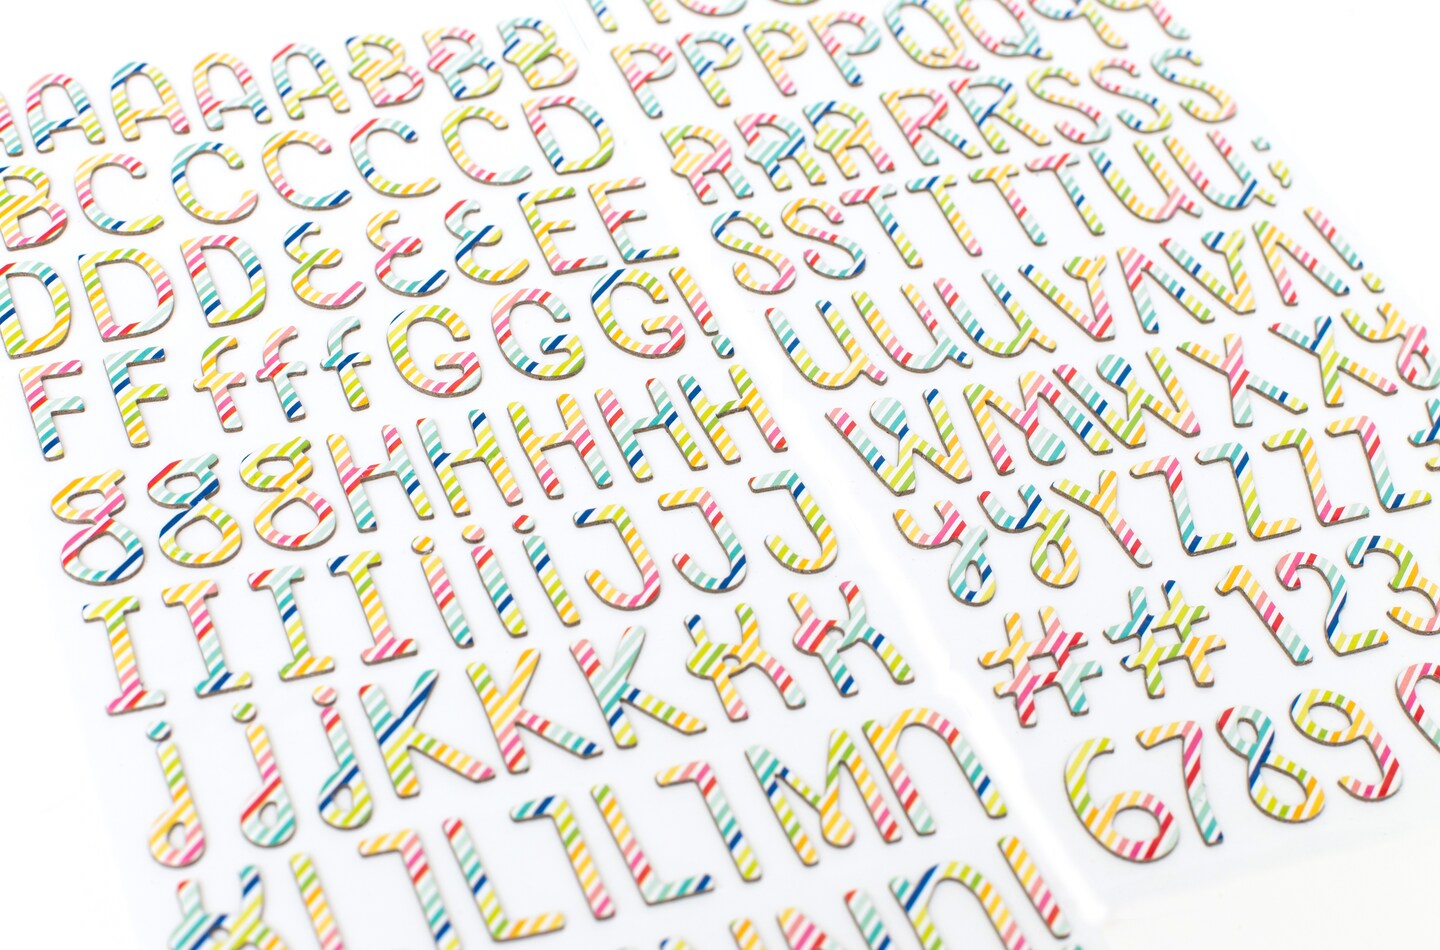 AAAAABBB
BCCCCCD
DDDEEEEE
FFfffGGG!
gggHHHHH
IIIIiiiJJJ
jjjKKKKK
LLLLMn
PPPPQQQ
RRRRRSSS
SSTTTTUU;
UUUUVVVV!
WMWXX
yyYZZZZ
##123
6789